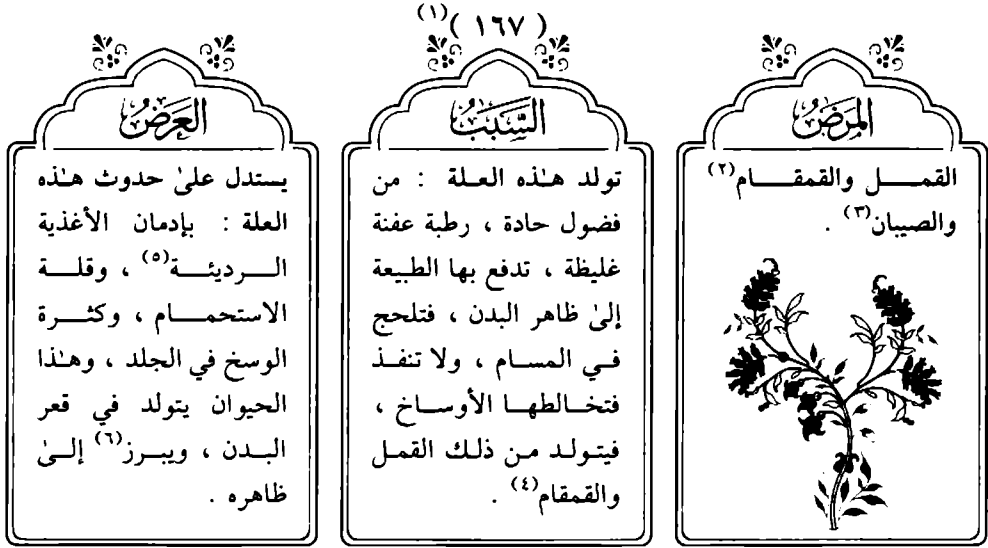 ( ١٦٧ )(١)
المَرَضُ
القمل والقمقام(٢)
والصيبان(٣) .
السَّبَبُ
تولد هـٰذه العلة : من
فضول حادة ، رطبة عفنة
غليظة ، تدفع بها الطبيعة
إلىٰ ظاهر البدن ، فتلحج
في المسام ، ولا تنفذ
فتخالطها الأوساخ ،
فيتولد من ذلك القمل
والقمقام(٤) .
العَرَضُ
يستدل علىٰ حدوث هـٰذه
العلة : بإدمان الأغذية
الرديئة(٥) ، وقلة
الاستحمام ، وكثرة
الوسخ في الجلد ، وهـٰذا
الحيوان يتولد في قعر
البدن ، ويبرز(٦) إلىٰ
ظاهره .